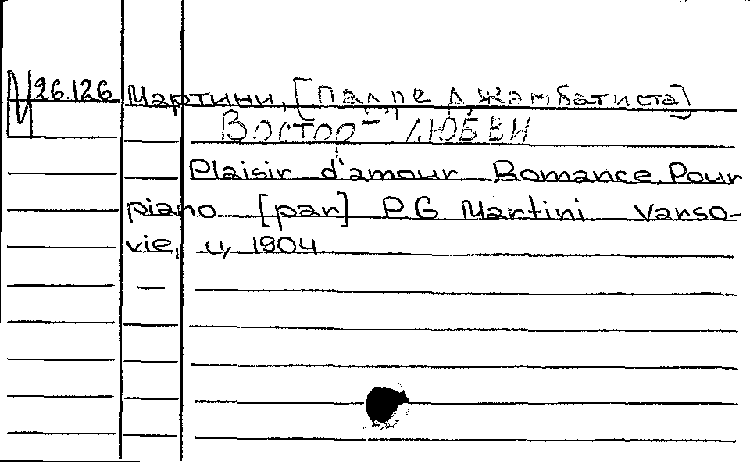 26.126 Мартини, [Падре Джамбатиста]
Восторг любви
Plaisir d'amour Romance Pour
piano [par] P.G Martini Varso-
vie, ц, 1904